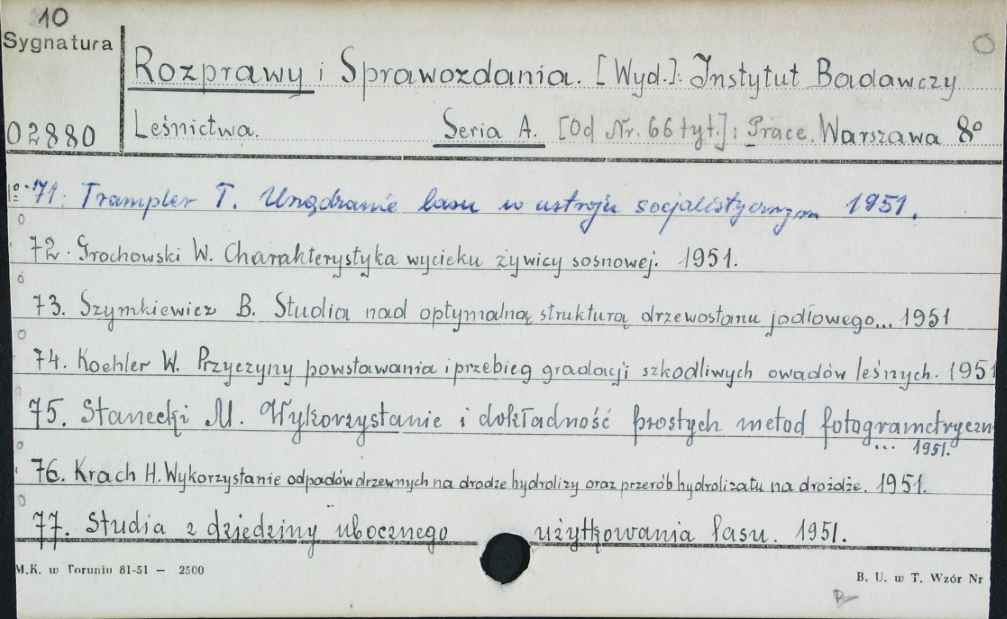 10
Sygnatura
Rozprawy i Sprawozdania. [Wyd.]: Instytut Badawczy
02880
Leśnictwa. Seria A. [Od Nr. 66 tyt.]: Prace. Warszawa 8°
71. Trampler T. Urządzanie lasu w ustroju socjalistycznym 1951.
72. Grochowski W. Charakterystyka wycieku żywicy sosnowej. 1951.
73. Szymkiewicz B. Studia nad optymalną strukturą drzewostanu jodłowego... 1951
74. Koehler W. Przyczyny powstawania i przebieg gradacji szkodliwych owadów leśnych. 1951
75. Stanecki M. Wykorzystanie i dokładność prostych metod fotogrametryczn
... 1951.
76. Krach H. Wykorzystanie odpadów drzewnych na drodze hydrolizy oraz przerób hydrolizatu na drożdże. 1951.
77. Studia z dziedziny ubocznego użytkowania lasu. 1951.
M.K. w Toruniu 81-51 — 2500
B. U. w T. Wzór Nr